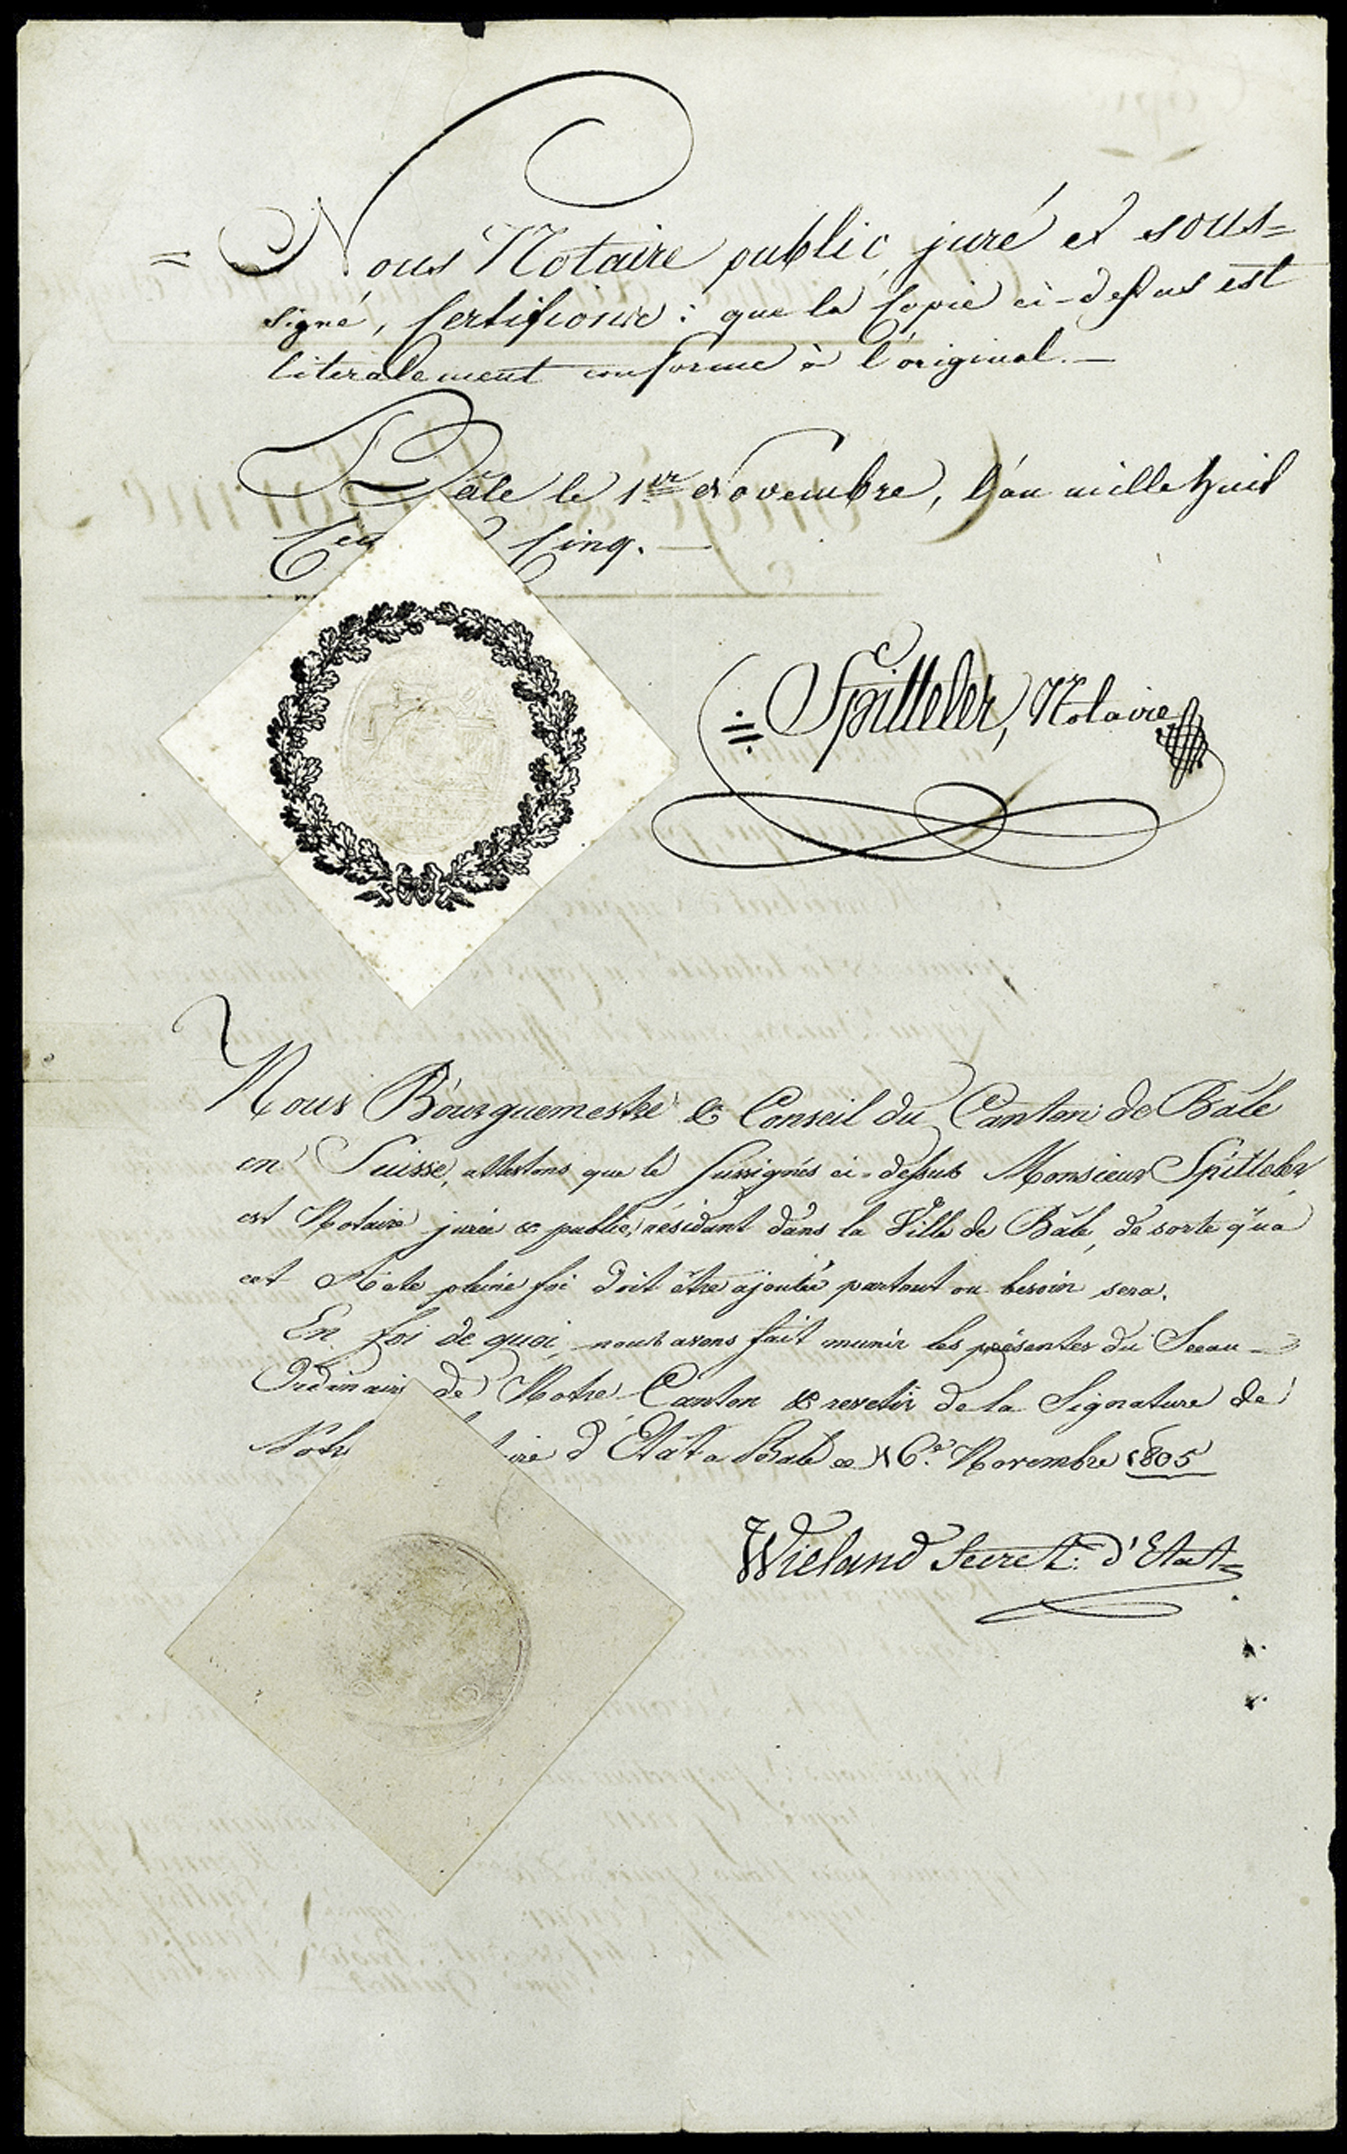 = Nous Notaire public, juré et sous=
signé, Certifions : que la Copie ci-dessus est
literalement conforme à l'original. —
Bâle le 1er Novembre, l'an mille huit
Cinq. —
Spitteler, Notaire
Nous Bourguemestre & Conseil du Canton de Bâle
en Suisse, attestons que le sussignés ci-dessus Monsieur Spitteler
est Notaire jurée & public, résidant dans la Ville de Bâle, de sorte qu'a
cet Acte pleine foi doit être ajoutée partout ou besoin sera.
En foi de quoi, nous avons fait munir les présentes du Sceau
Ordinaire de Notre Canton & revetir de la Signature de
d'Etat a Bale ce 16.e Novembre 1805
Wieland Secret: d'Etat=